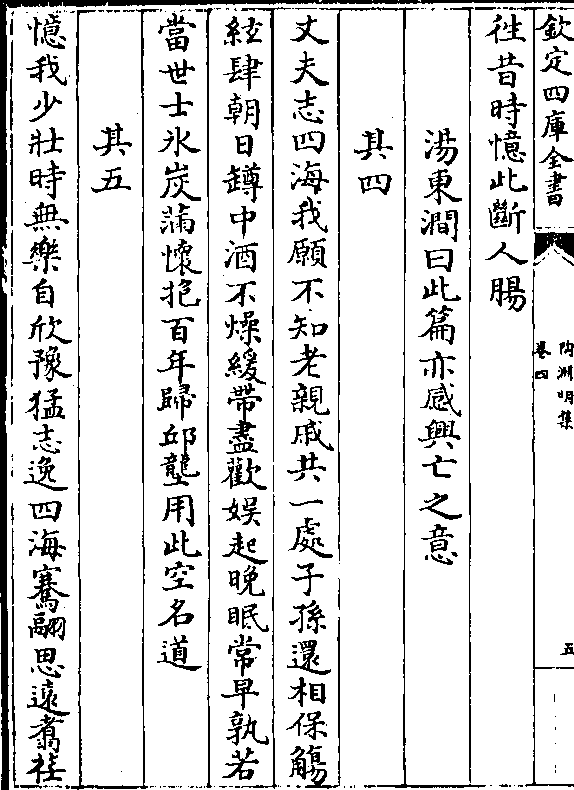 欽定四庫全書
陶淵明集
卷四
五
徃昔時憶此斷人腸
湯東澗曰此篇亦感興亡之意
其四
丈夫志四海我願不知老親戚共一處子孫還相保觴
絃肆朝日罇中酒不燥緩帶盡歡娛起晚眠常早孰若
當世士氷炭滿懷抱百年歸邱壟用此空名道
其五
憶我少壯時無樂自欣豫猛志逸四海騫翮思遠翥荏